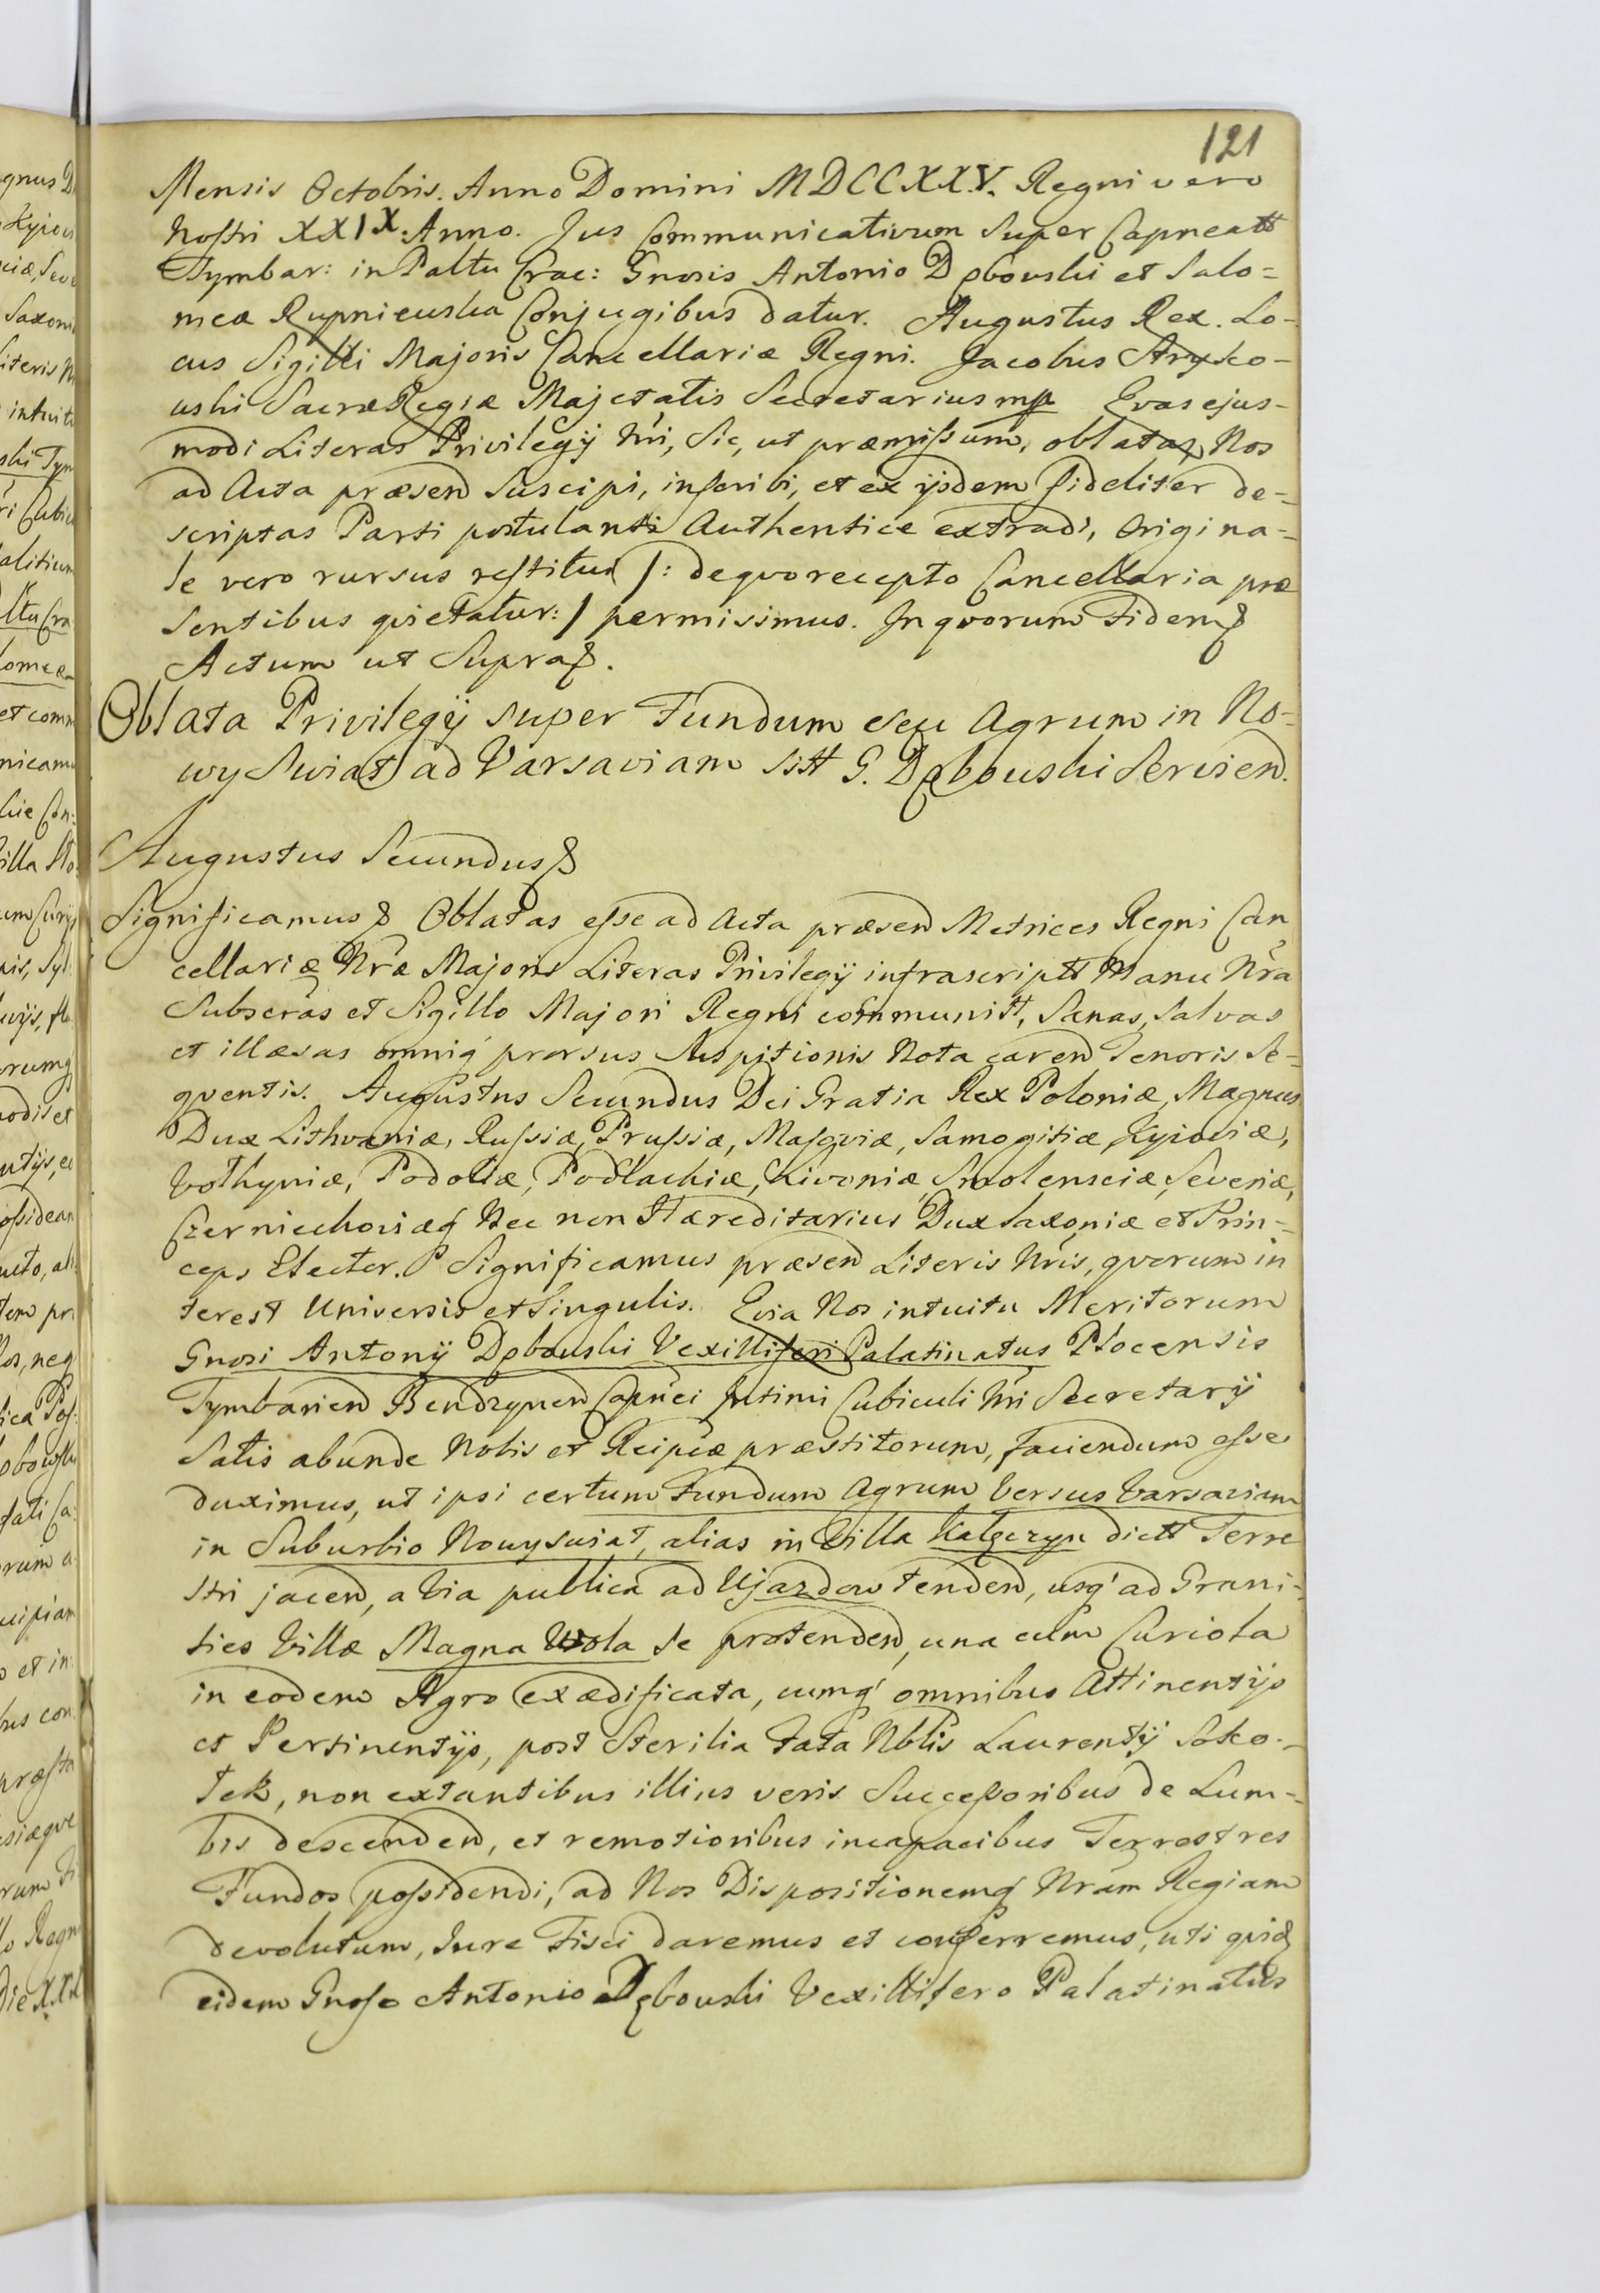 121
Mensis Octobris. Anno Domini MDCCXXV. Regni vero
Nostri XXIX. Anno. Jus Communicativum Super Capneatt
Tymbar: in Paltu Crac: Gnosis Antonio Dębowski et Salo=
meæ Rupniewska Conjugibus datur. Augustus Rex. Lo-
cus Sigilli Majoris Cancellariæ Regni. Jacobus
wski Sacræ Regiæ Majetatis Secretarius mp Quas ejus-
modi Literas Privilegij Nri, Sic, ut præmissum, oblatas, Nos
ad Acta præsen Suscipi, inscribi, et ex ijsdem fideliter de-
scriptas Parti postulanti Authentice extradi, Origina-
le vero rursus restitui /: de qvo recepto Cancellaria præ
sentibus qvietatur: / permisimus. In qvorum Fidem &
Actum ut Supra &.
Oblata Privilegij super Fundum seu Agrum in No-
wy Swiat ad Varsaviam sitt G. Dębowski Servien.
Augustus Secundus &
Significamus & Oblatas esse ad Acta præsen Metrices Regni Can
cellariæ Nræ Majoris Literas Privilegij infrascriptt Manu Nra
Subscras et Sigillo Majori Regni communitt, Sanas, Salvas
et illæsas omniq́ prorsus Suspitionis Nota caren Tenoris Se-
qventis. Augustus Secundus Dei Gratia Rex Poloniæ, Magnus
Dux Lithvaniæ, Russiæ, Prussiæ, Masoviæ, Samogitiæ, Kyioviæ,
Volhyniæ, Podoliæ, Podlachiæ, Livoniæ, Smolensciæ, Severiæ,
Czerniechoviæq́ Nec non Hæreditarius Dux Saxoniæ et Prin-
ceps Elector. Significamus præsen Literis Nris, qvorum in
terest Universis et Singulis. Qvia Nos intuitu Meritorum
Gnosi Antonij Dębowski Vexilliferi Palatinatus Plocensis
Tymbarien Bendzynen Capnei Intimi Cubiculi Nri Secretarij
Satis abunde Nobis et Reipcæ præstitorum, faciendum esse
duximus, ut ipsi certum Fundum Agrum Versus Varsaviam
in Suburbio Nowyswiat, alias in Villa Kałęczyn dictt Terre
stri jacen, a Via publica ad Ujazdow tenden, usq́ ad Grani-
ties Villæ Magna Wola se protenden, una cum Curiola
in eodem Agro exædificata, cumq́ omnibus Attinentijs
et Pertinentijs, post Sterilia Fata Nblis Laurentij Soko-
tek, non extantibus illius veris Successoribus de Lum-
bis descenden, et remotioribus incapacibus Terrestres
Fundos possidendi, ad Nos Dispositionemq́ Nram Regiam
devolutum, Jure Fisci daremus et conferremus, uti qvid
eidem Gnoso Antonio Dębowski Vexillifero Palatinatus